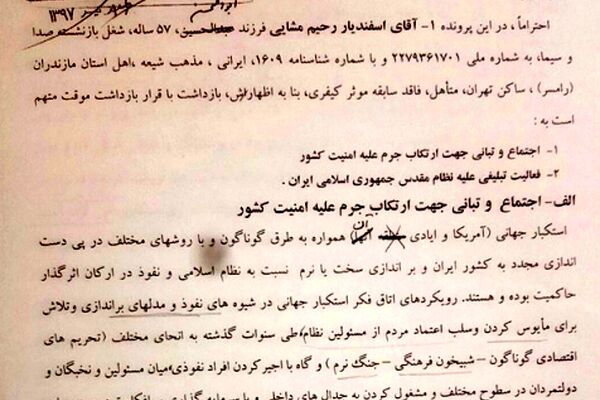 ۱۳۹۷
احتراماً ، در این پرونده ۱- آقای اسفندیار رحیم مشایی فرزند عبدالحسین، ۵۷ ساله، شغل بازنشسته صدا
و سیما، به شماره ملی ۲۲۷۹۳۶۱۷۰۱ و با شماره شناسنامه ۱۶۰۹، ایرانی ، مذهب شیعه ،اهل استان مازندران
(رامسر) ، ساکن تهران، متأهل، فاقد سابقه موثر کیفری، بنا به اظهارش، بازداشت با قرار بازداشت موقت متهم
است به :
۱- اجتماع و تبانی جهت ارتکاب جرم علیه امنیت کشور
۲- فعالیت تبلیغی علیه نظام مقدس جمهوری اسلامی ایران .
الف- اجتماع و تبانی جهت ارتکاب جرم علیه امنیت کشور
استکبار جهانی (آمریکا و ایادی آن) همواره به طرق گوناگون و با روشهای مختلف در پی دست
اندازی مجدد به کشور ایران و بر اندازی سخت یا نرم نسبت به نظام اسلامی و نفوذ در ارکان اثرگذار
حاکمیت بوده و هستند. رویکردهای اتاق فکر استکبار جهانی در شیوه های نفوذ و مدلهای براندازی وتلاش
برای مأیوس کردن وسلب اعتماد مردم از مسئولین نظام، طی سنوات گذشته به انحای مختلف (تحریم های
اقتصادی گوناگون – شبیخون فرهنگی – جنگ نرم ) و گاه با اجیر کردن افراد نفوذی،میان مسئولین و نخبگان و
دولتمردان در سطوح مختلف و مشغول کردن به جدال های داخلی و با سرمایه گذاری